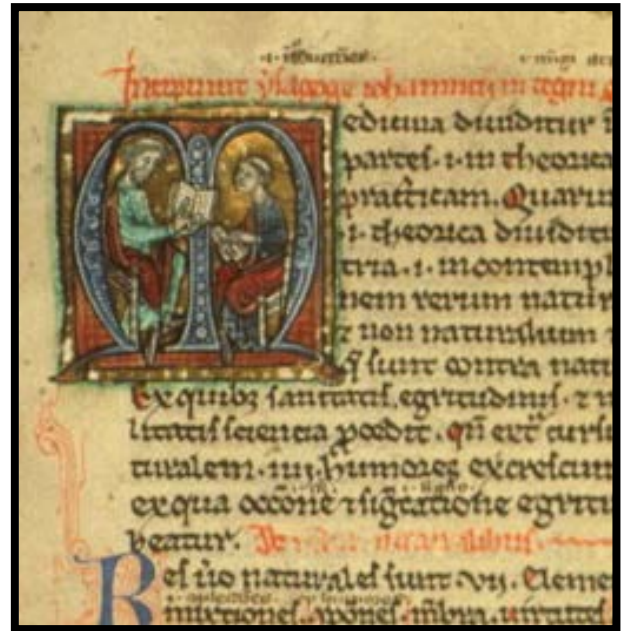 Incipiunt ysagoge iohannicii in tegni
Medicina diuiditur i
partes. i. in theorica
practicam. Quarum
.i. theorica diuiditu
tria. i. in contempl
nem rerum natur
⁊ non naturalium ⁊
q̄ sunt contra natu
Ex quibꝫ sanitatis, egritudinis. ⁊ n
litatis sciencia pcedit. qn̄ curs
turalem. iiii. humores excrescun
ex qua occōne ⁊ sigcatione egritu
beatur. De naturalibus.
Res ūo naturales sunt. vii. Eleme
mixtiones. m̄bra. uirtutes